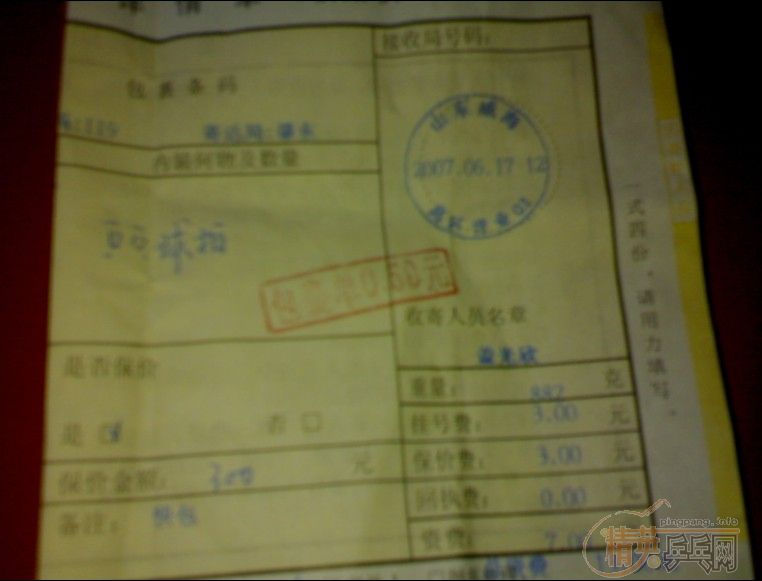 接收局号码:
包裹条码
山东威海
2007.06.17 12
内装何物及数量
乒乓球拍
包裹单0.50元
收寄人员名章
是否保价
是 否
重量: 882 克
挂号费: 3.00 元
保价金额: 300 元
保价费: 3.00 元
备注: 快包
回执费: 0.00 元
资费: 7.0
一式四份,请用力填写。
pingpang.info
精英乒乓网